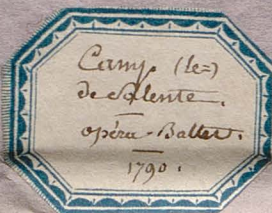 Camp (le=)
de Salente.
opéra-Ballet.
1790.